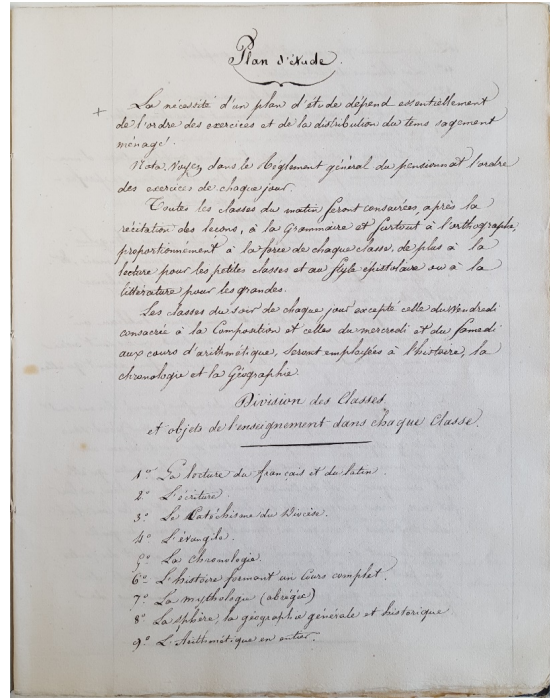 Plan d'étude.
+ La nécessité d'un plan d'étude dépend essentiellement
de l'ordre des exercices et de la distribution du tems sagement
ménagé.
Nota. Voyez dans le Règlement général du pensionnat l'ordre
des exercices de chaque jour.
Toutes les classes du matin seront consacrées, après la
récitation des leçons, à la Grammaire et surtout à l'orthographe,
proportionnément à la force de chaque classe, de plus à la
lecture pour les petites classes et au style épistolaire ou à la
littérature pour les grandes.
Les classes du soir de chaque jour excepté celle du Vendredi
consacrée à la Composition et celles du mercredi et du samedi
aux cours d'arithmétique, seront employées à l'histoire, la
chronologie et la Géographie.
Division des Classes
et objets de l'enseignement dans chaque Classe.
1o La lecture du français et du latin.
2o L'écriture.
3o Le Catéchisme du Diocèse.
4o L'évangile.
5o La chronologie.
6o L'histoire formant un Cours complet.
7o La mythologie (abrégée)
8o La sphère, la géographie générale et historique.
9o L'Arithmétique en entier.